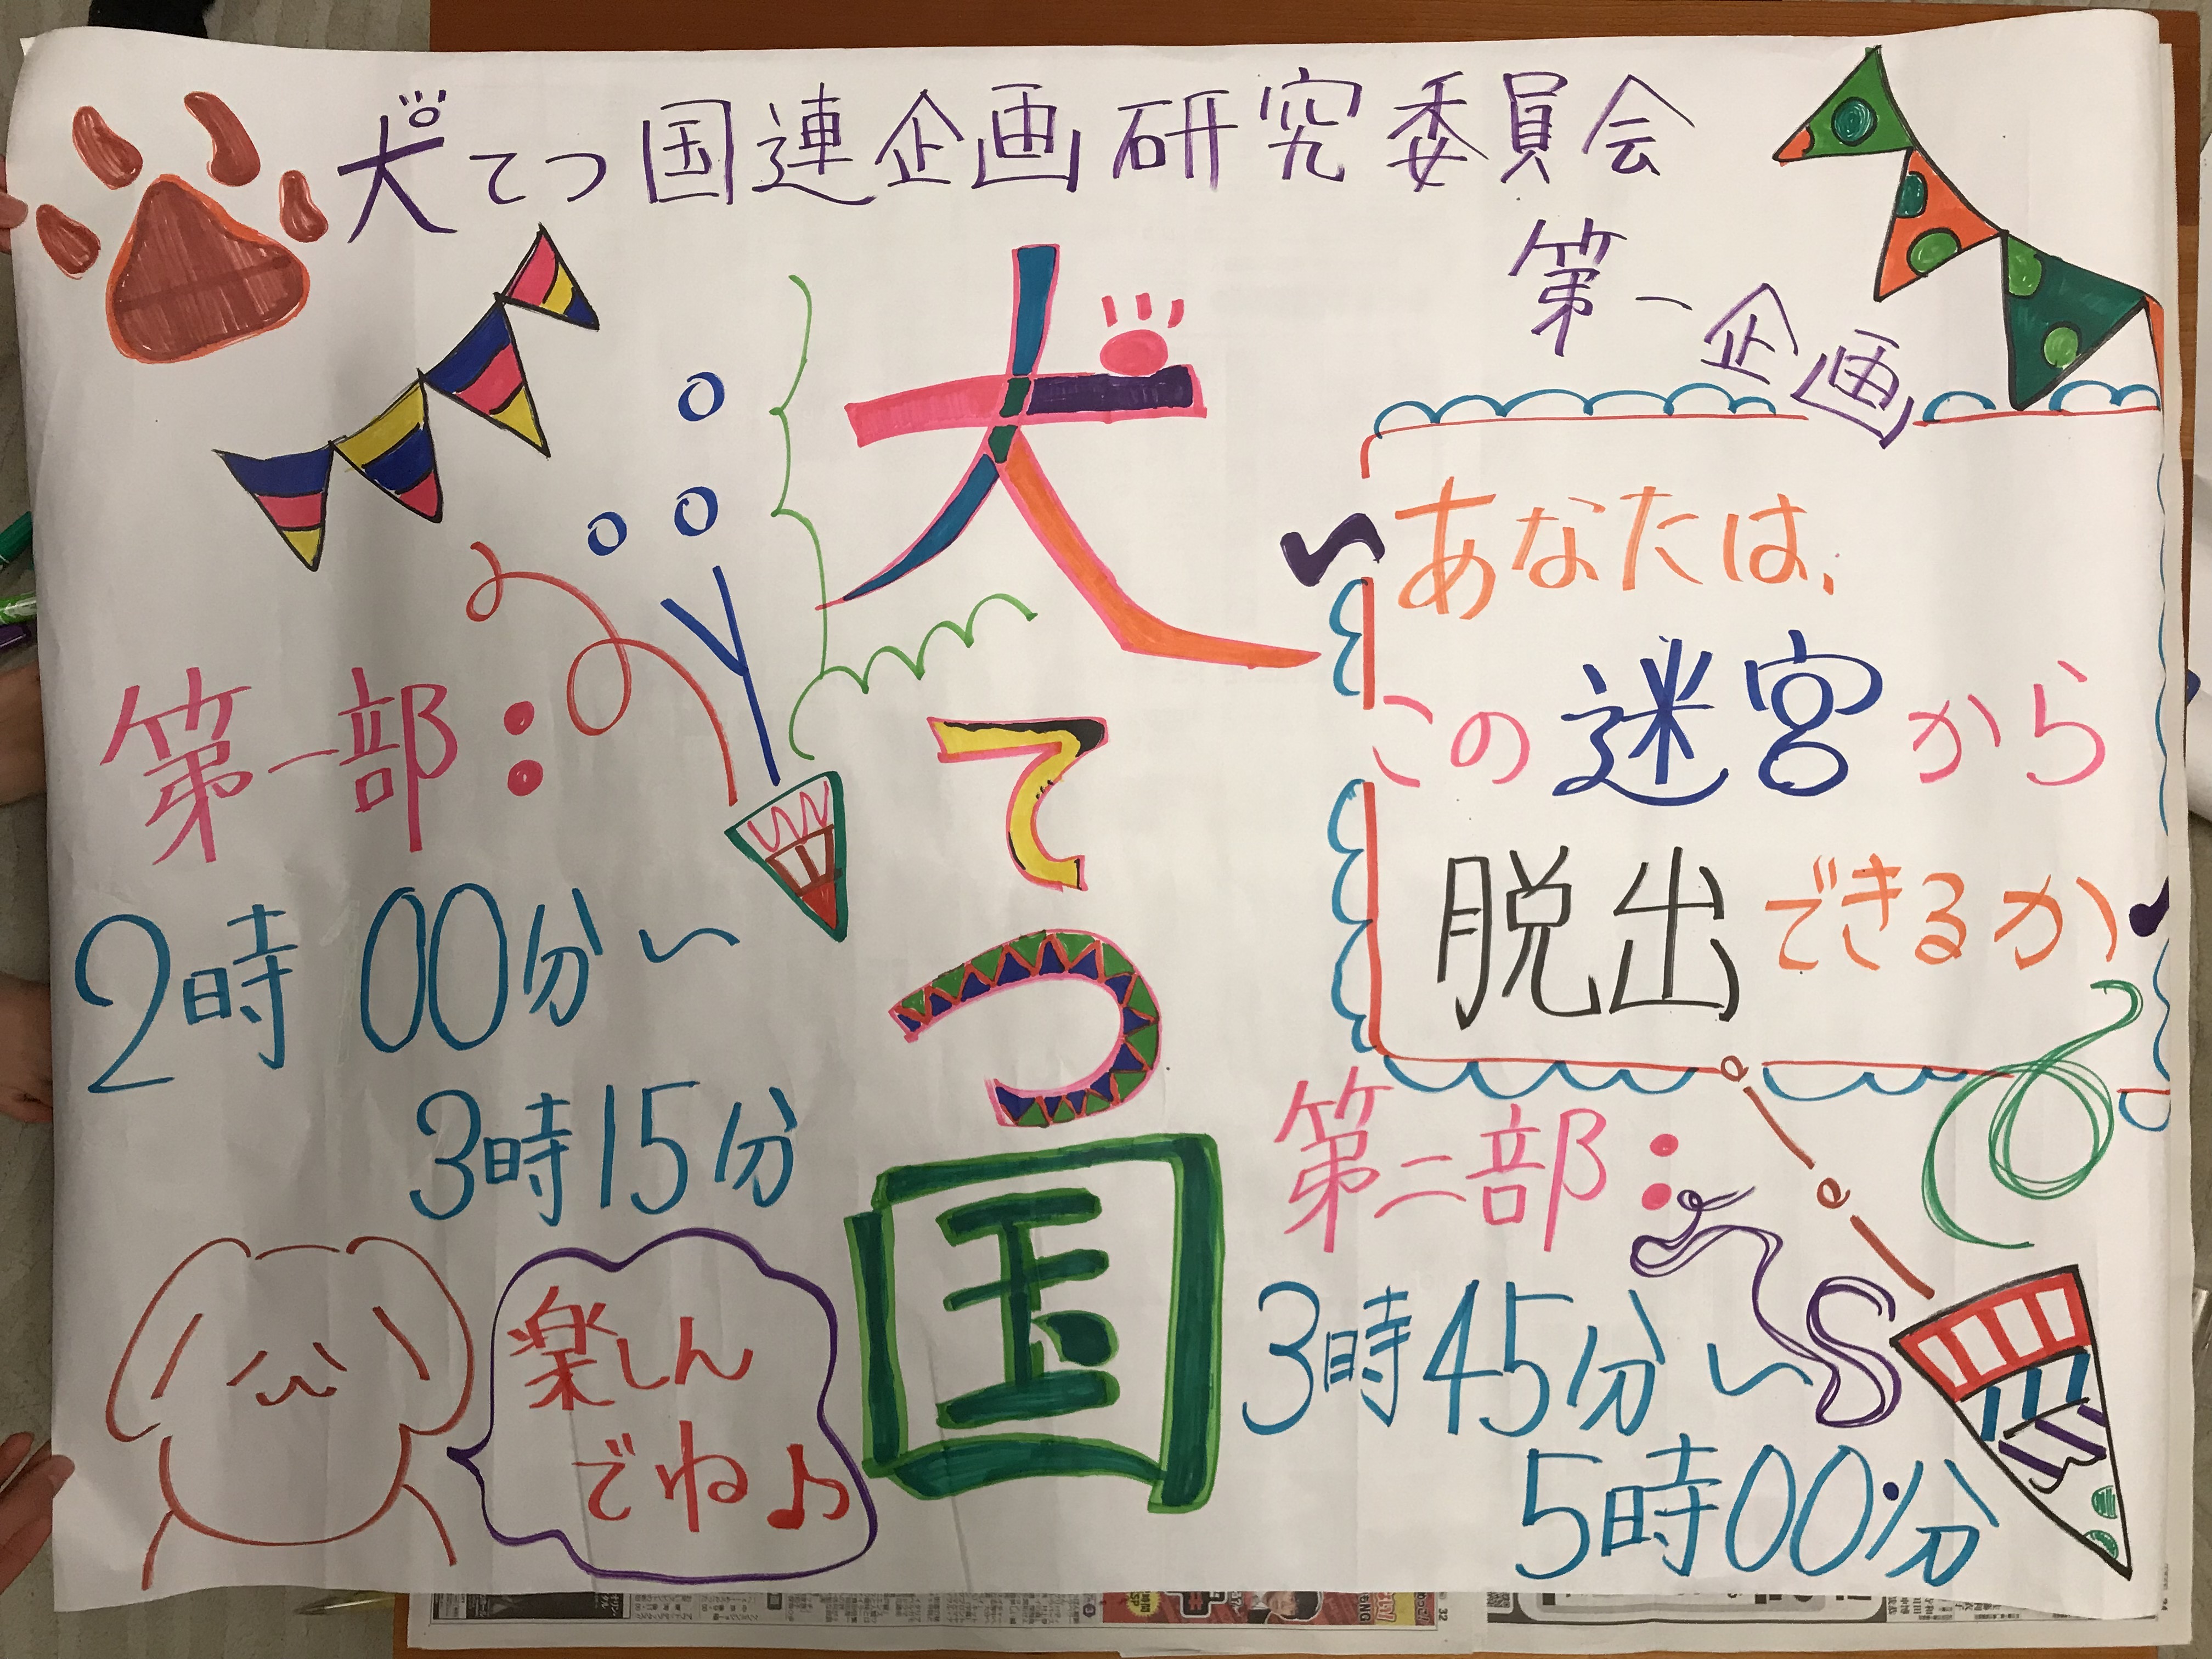 犬てつ国連企画研究委員会
第一企画
犬てつ国
〜あなたは、
この迷宮から
脱出できるか〜
第一部:
2時00分〜
3時15分
第二部:
3時45分〜
5時00分
楽しん
でね♪